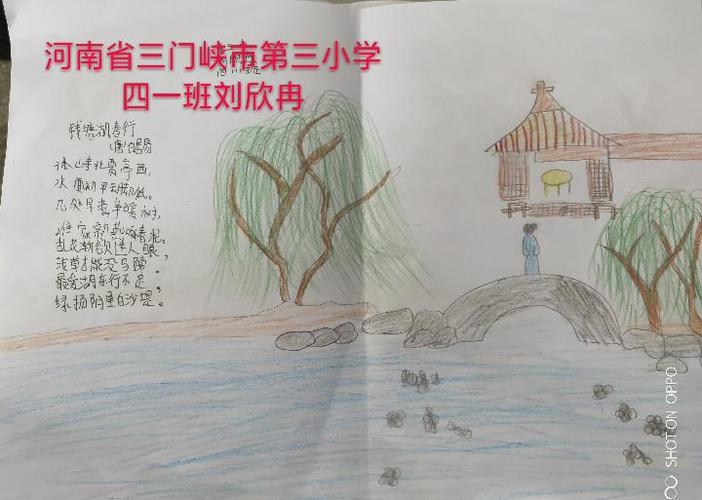 河南省三门峡市第三小学
四一班刘欣冉
钱塘湖春行
唐白居易
孤山寺北贾亭西,
水面初平云脚低。
几处早莺争暖树,
谁家新燕啄春泥。
乱花渐欲迷人眼,
浅草才能没马蹄。
最爱湖东行不足,
绿杨阴里白沙堤。
SHOT ON OPPO